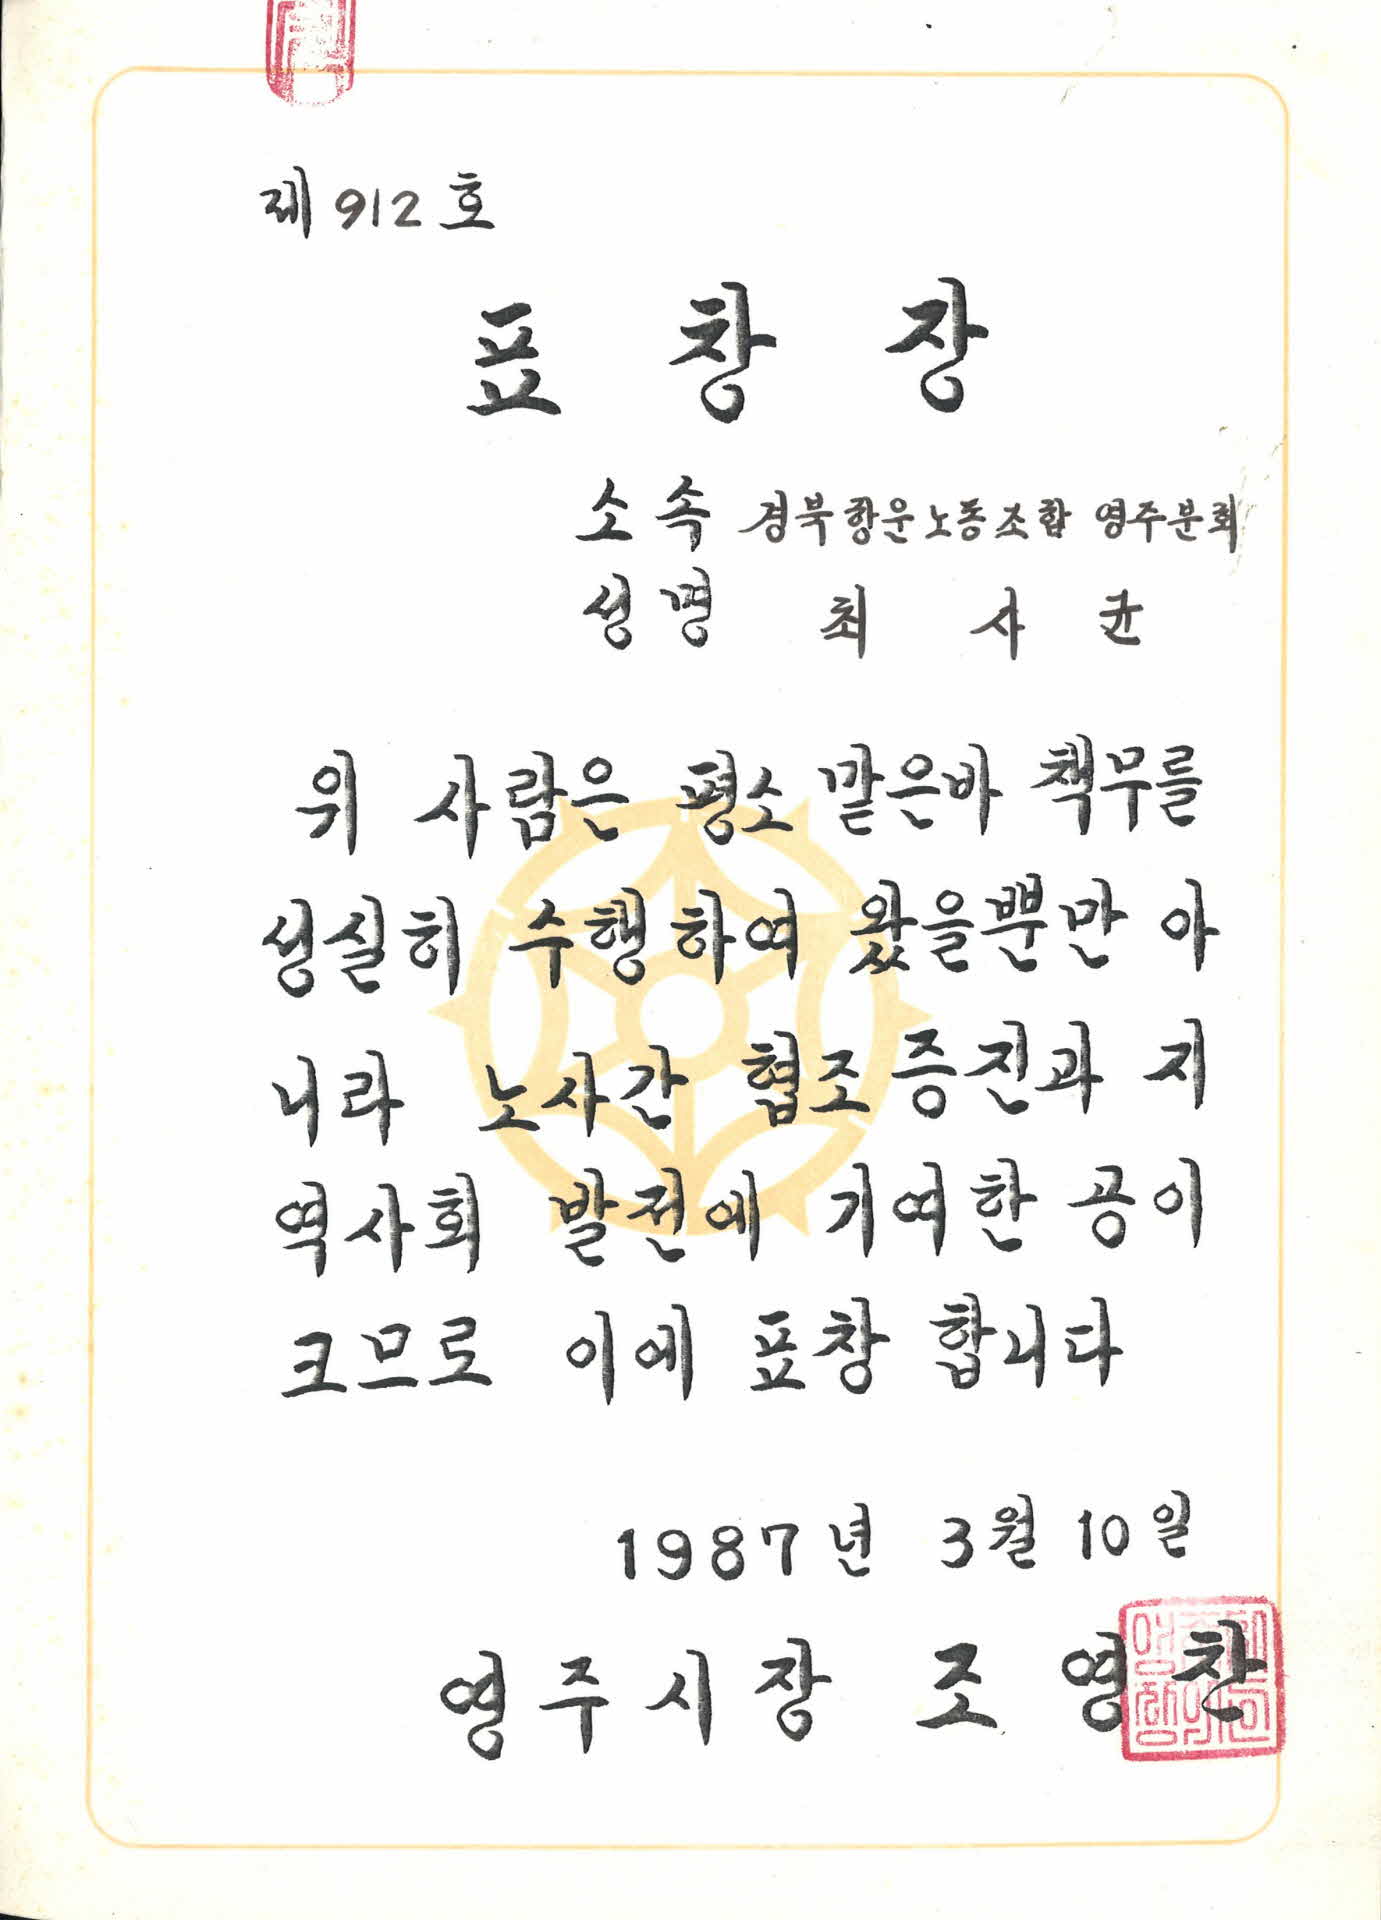 제 912 호
표 창 장
소 속 경북항운노동조합 영주분회
성 명 최 사 균
위 사람은 평소 맡은바 책무를
성실히 수행하여 왔을뿐만 아
니라 노사간 협조증진과 지
역사회 발전에 기여한 공이
크므로 이에 표창 합니다
1987 년 3 월 10 일
영 주 시 장 조 영 찬